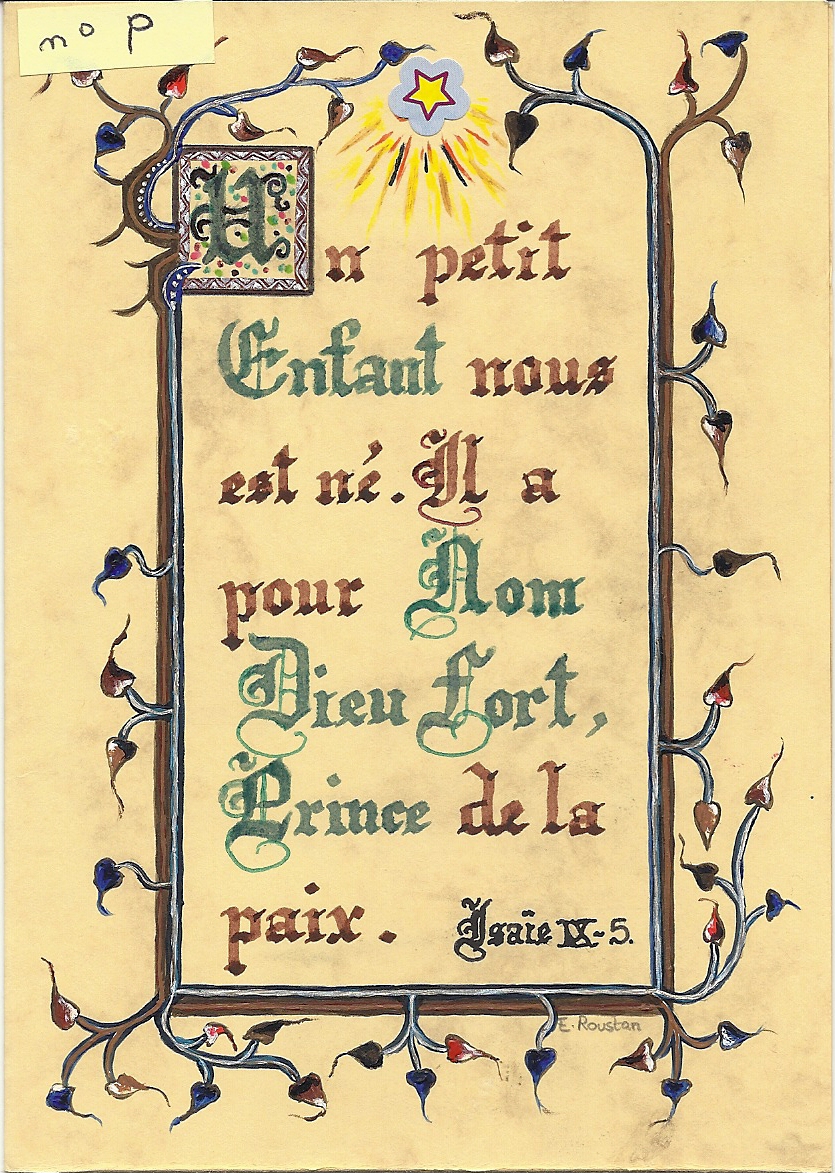 n o p
Un petit
Enfant nous
est né. Il a
pour Nom
Dieu fort,
Prince de la
paix. Isaïe IX-5.
E. Roustan